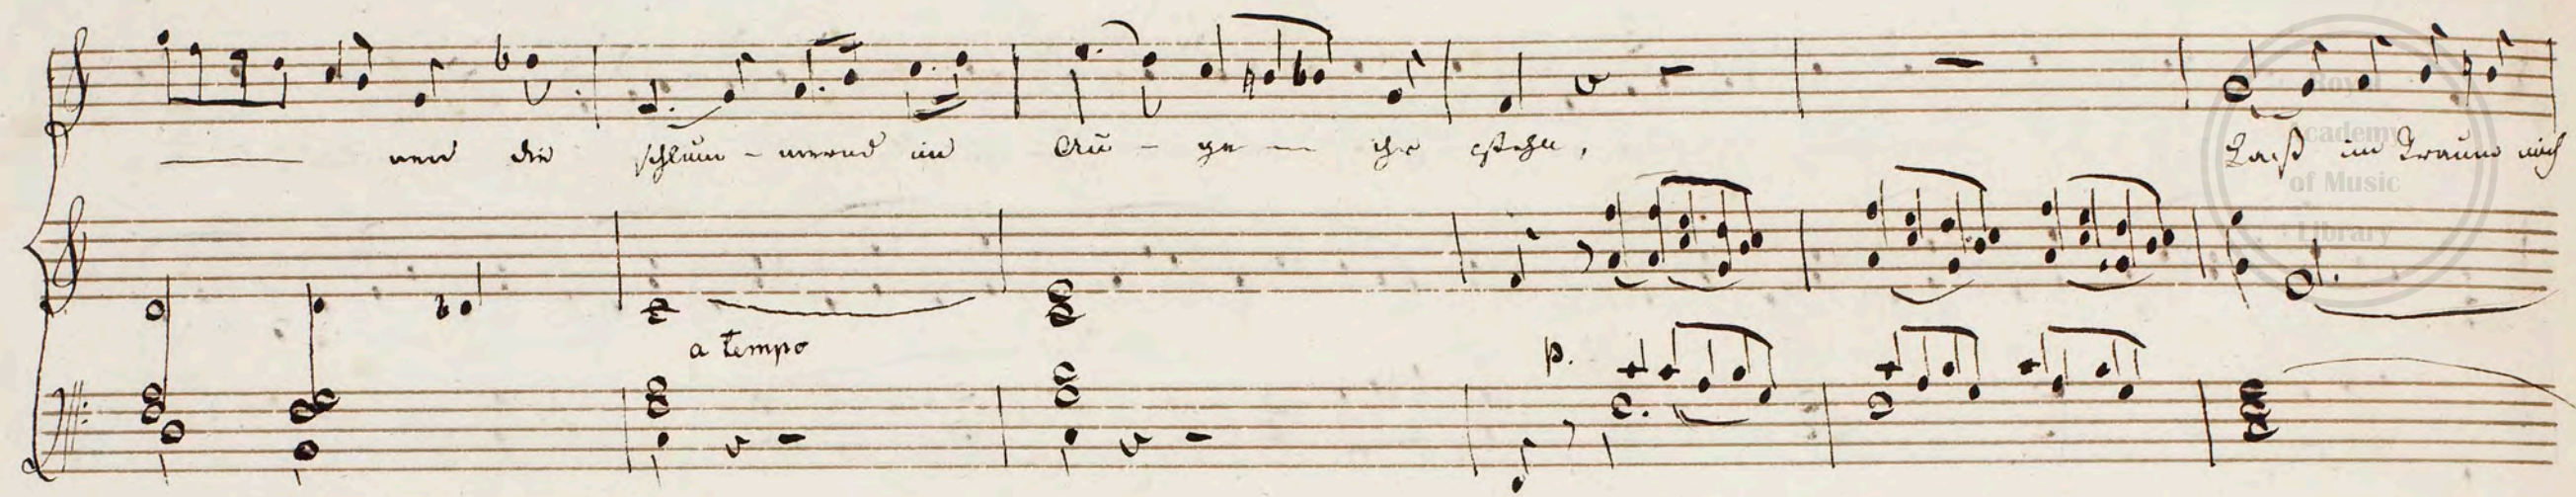 nen die schlum - mernd im Au - ge - ihr stehn, Laß im Traum mich
a tempo
p.
Royal
Academy
of Music
Library